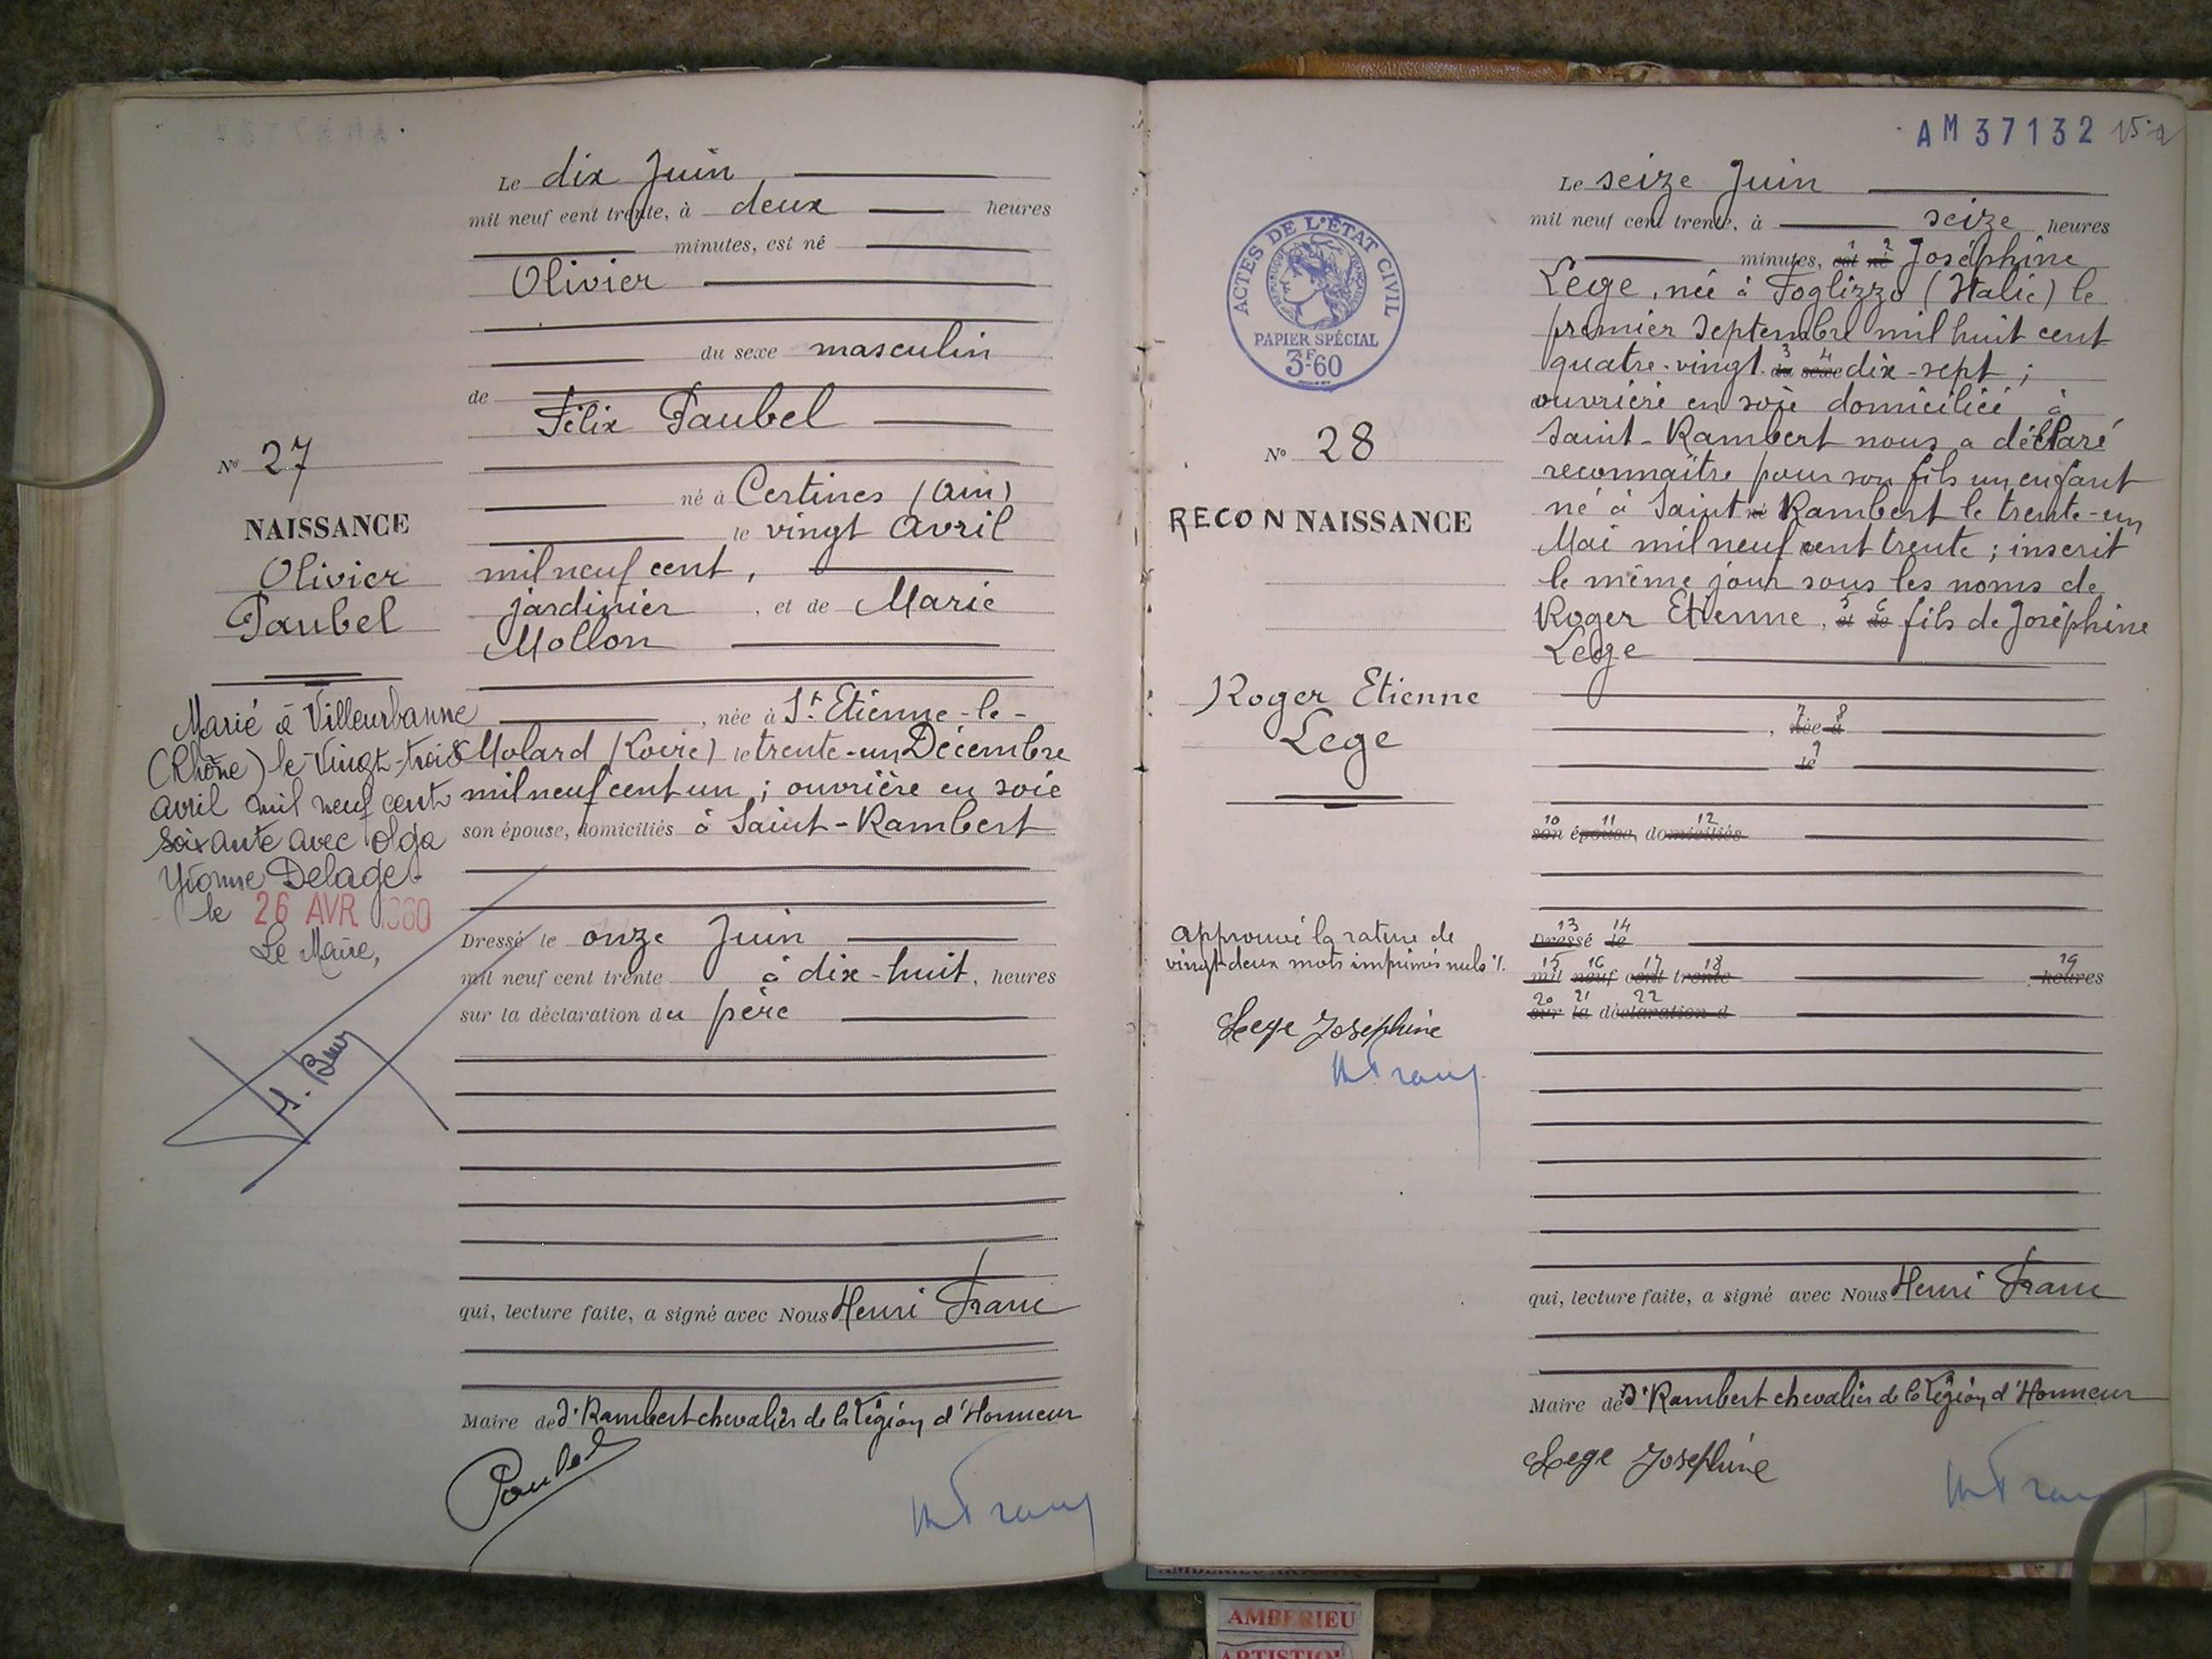 Le dix Juin
mil neuf cent trente, à deux heures
minutes, est né
Olivier
du sexe masculin
de
Félix Paubel
né à Certines (Ain)
le vingt Avril
mil neuf cent,
jardinier, et de Marie
Mollon
, née à St. Etienne-le-
Molard (Loire) le trente-un Décembre
mil neuf cent un ; ouvrière en soie
son épouse, domiciliés à Saint-Rambert
Dressé le onze Juin
mil neuf cent trente à dix-huit, heures
sur la déclaration du père
qui, lecture faite, a signé avec Nous Henri Franc
Maire de St Rambert chevalier de la Légion d'Honneur
Paubel
No 27
NAISSANCE
Olivier
Paubel
Marié à Villeurbanne
(Rhône) le Vingt-trois
avril mil neuf cent
soixante avec Olga
Yvonne Delage
le 26 AVR 1960
Le Maire,
AM 37132
ACTES DE L'ÉTAT CIVIL
RÉPUBLIQUE FRANÇAISE
PAPIER SPÉCIAL
3F60
No 28
RECONNAISSANCE
Roger Etienne
Lege
approuvé la rature de
vingt-deux mots imprimés nuls
Lege Josephine
Le seize Juin
mil neuf cent trente, à seize heures
1 2
minutes, est né Joséphine
Lege, née à Foglizzo (Italie) le
premier Septembre mil huit cent
3 4
quatre-vingt du sexe dix-sept ;
ouvrière en soie domiciliée à
Saint-Rambert nous a déclaré
reconnaître pour son fils un enfant
né à Saint Rambert le trente-un
Mai mil neuf cent trente ; inscrit
le même jour sous les noms de
5 6
Roger Etienne, et de fils de Joséphine
Lege
7 8
, née à
9
le
10 11 12
son épouse, domiciliés
13 14
Dressé le
15 16 17 18 19
mil neuf cent trente heures
20 21 22
sur la déclaration d
qui, lecture faite, a signé avec Nous Henri Franc
Maire de St Rambert chevalier de la Légion d'Honneur
Lege Josephine
AMBERIEU